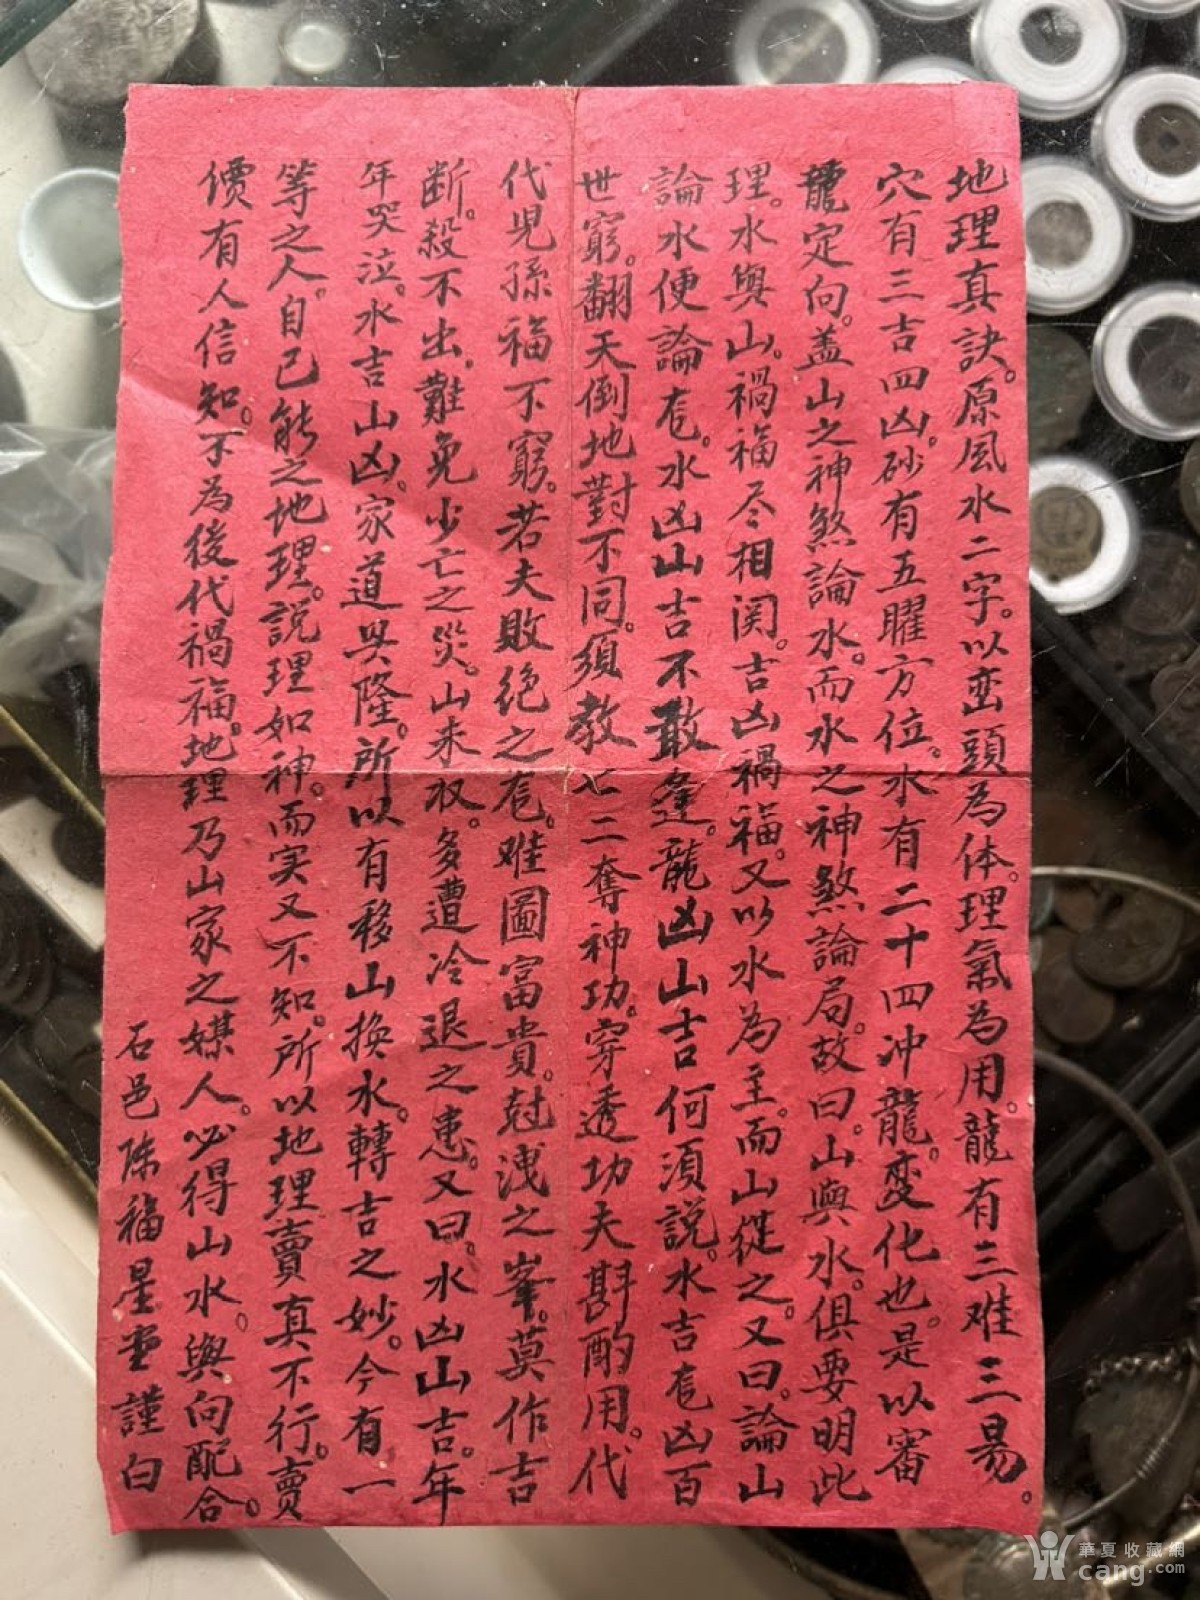 地理真訣。原風水二字。以峦頭為体。理氣為用。龍有三难三易。
穴有三吉四凶。砂有五曜方位。水有二十四冲龍。変化也。是以審
龍定向。盖山之神煞論水。而水之神煞論局。故曰。山與水。俱要明此
理。水與山。禍福尽相関。吉凶禍福。又以水為主。而山從之。又曰。論山
論水便論䇄。水凶山吉不敢逢。龍凶山吉何須説。水吉䇄凶百
世窮。翻天倒地對不同。須教七二奪神功。穿透功夫斟酌用。代
代児孫福不窮。若夫敗絶之䇄。难圖富貴。尅洩之峯。莫作吉
断。殺不出。難免少亡之災。山来収。多遭冷退之患。又曰。水凶山吉。年
年哭泣。水吉山凶。家道兴隆。所以有移山換水。轉吉之妙。今有一
等之人。自己能之地理。説理如神。而实又不知。所以地理賣真不行。賣
價有人信知。不為後代禍福。地理乃山家之媒人。必得山水。與向配合。
石邑陈福星堂謹白
華夏收藏網
cang.com